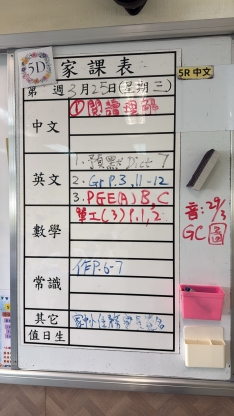 5D 家課表
5R 中文
第 週 3月25日(星期三)
中文 ①閱讀理解
英文 1. 預默 Dict 7
2. Gr P.3, 11-12
3. P&E(A) B, C
數學 單工(3) P.1, 2
常識 作P.6-7
其它
值日生
音: 29/3
GC 圖